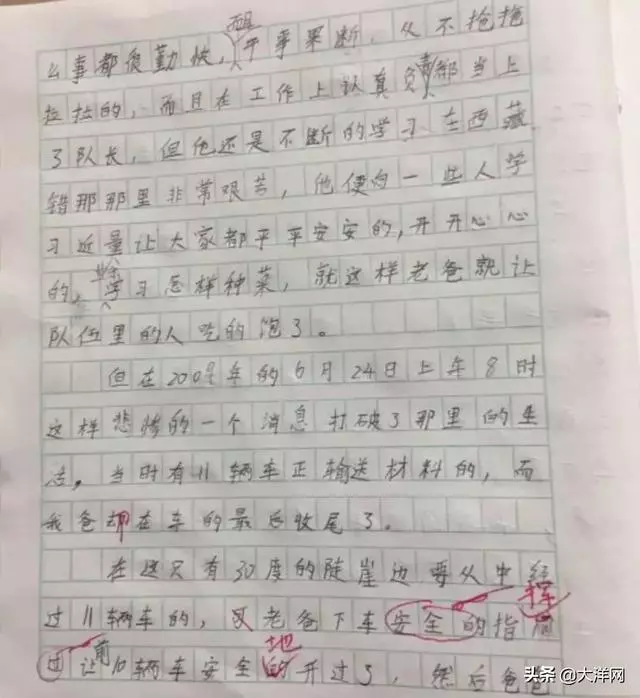 么事都很勤快,而且干事果断,从不拖拖
拉拉的,而且在工作上认真负责都当上
了队长,但他还是不断的学习在西藏
错那那里非常艰苦,他便向一些人学
习近量让大家都平平安安的,开开心心
的,学习怎样种菜,就这样老爸就让
队伍里的人吃的饱了。
但在2009年的6月24日上午8时
这样悲惨的一个消息打破了那里的生
态,当时有11辆车正输送材料的,而
我爸却在车的最后收尾了。
在这只有30度的陡崖边要从中经
过11辆车的,老爸下车安全的指挥
让前10辆车安全地开过了,然后爸
头条 @大洋网